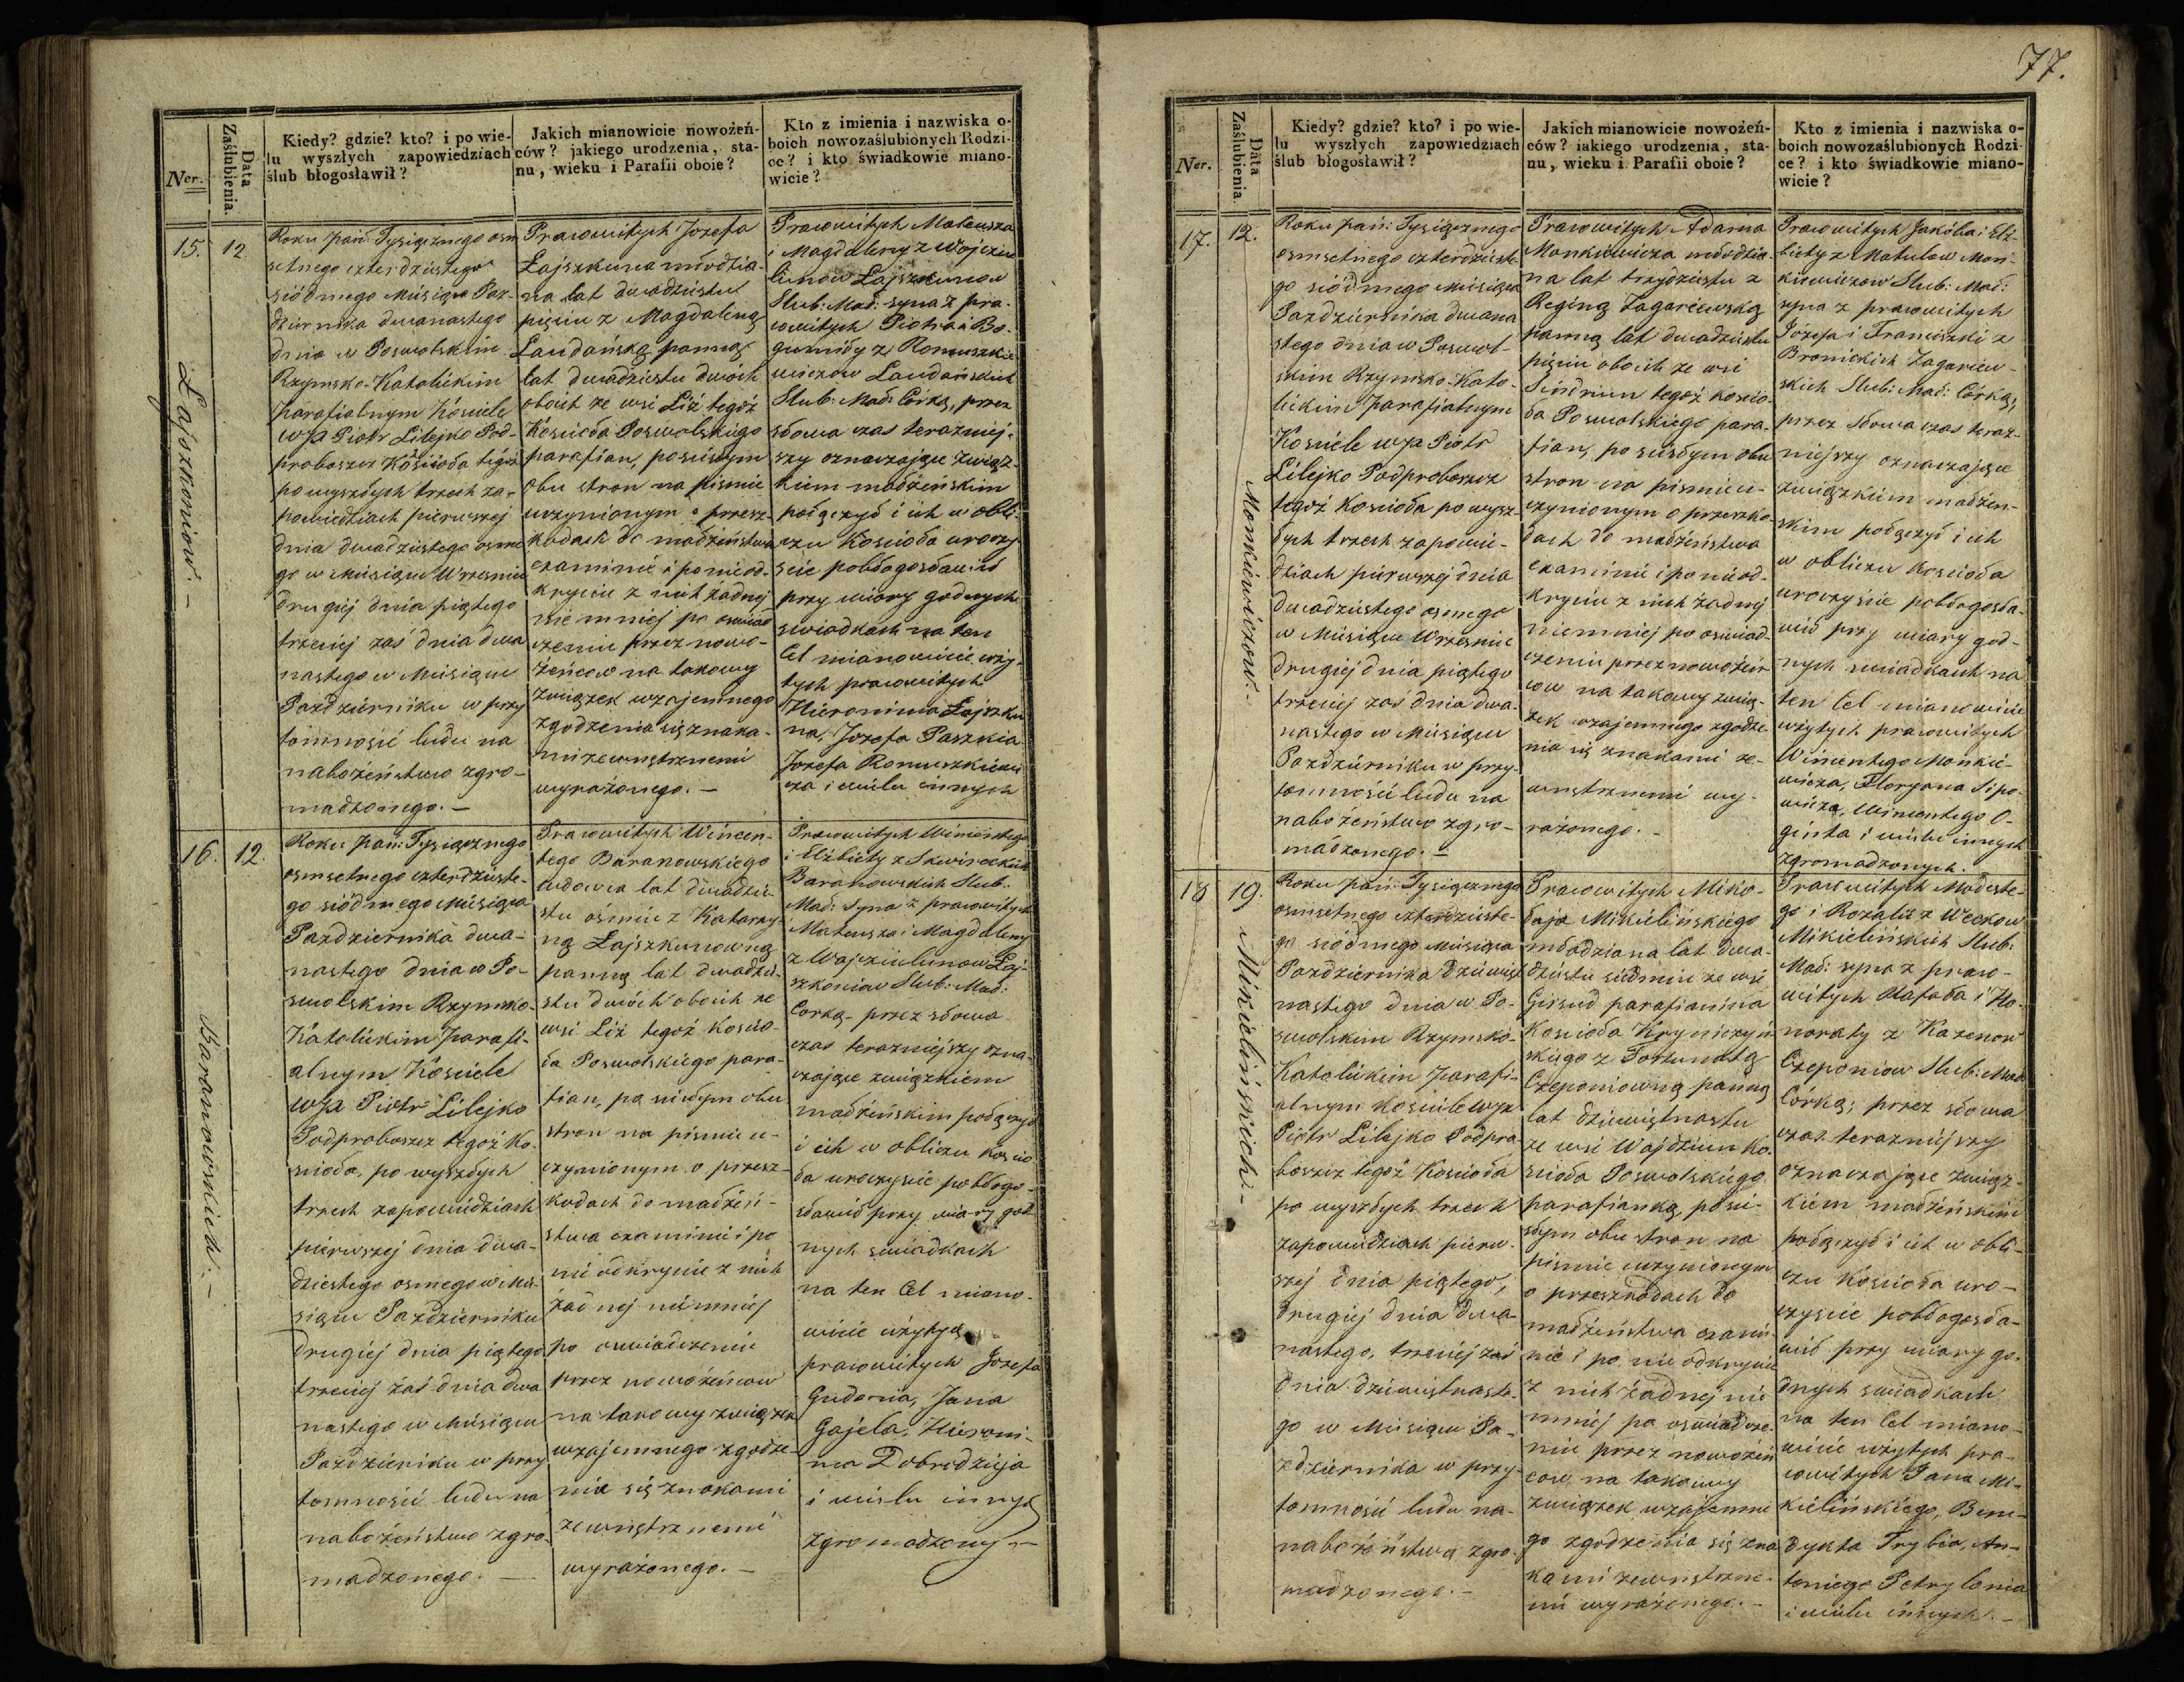 77.
Ner.
Data
Zaślubienia.
Kiedy? gdzie? kto? i po wie-
lu wyszłych zapowiedziach
ślub błogosławił?
Jakich mianowicie nowożeń-
ców? jakiego urodzenia, sta-
nu, wieku i Parafii oboie?
Kto z imienia i nazwiska o-
boich nowozaślubionych Rodzi-
ce? i kto świadkowie miano-
wicie?
15.
12
Łajszkoniow. –
Roku pań: Tysiącznego osm
setnego czterdziestego
siódmego Miesiąca Paz-
dziernika dwanastego
dnia w Poswolskim
Rzymsko-Katolickim
parafialnym Kościele
wJX Piotr Lilejko Pod-
proboszcz Kościoła tegoż
po wyszłych trzech za-
powiedziach pierwszej
dnia dwadziestego osme
go w Miesiącu Wrzesniu
drugiej dnia piątego
trzeciej zaś dnia dwa
nastego w Miesiącu
Pazdzierniku w przy
tomności ludu na
nabożeństwo zgro-
madzonego. –
Prawowitych Jozefa
Łajszkuna młodzia-
na lat dwadziestu
pięciu z Magdaleną
Laudańską panną
lat dwadziestu dwóch
oboich ze wsi Liż tegoż
Kościoła Poswolskiego
parafian, po ścisłym
obu stron na pismie
uczynionym o przesz-
kodach do małżeństwa
examinie i po nieod-
kryciu z nich żadnej
niemniej po oswiad
czeniu przez nowo-
żeńcow na takowy
związek wzajemnego
zgodzenia się znaka-
mi zewnętrznemi
wyrażonego. –
Prawowitych Mateusza
i Magdaleny z Wojciu
lunow Łajszkunow
Slub: Mał: syna z pra-
wowitych Piotra i Bo-
gumiły z Romuszkie
wiczow Laudańskich
Slub: Mał: Córką, przez
słowa czas terazniej-
szy oznaczające związ-
kiem małżeńskim
połączył i ich w obli-
czu Kościoła uroczy
scie pobłogosławił
przy wiary godnych
swiadkach na ten
Cel mianowicie uży-
tych prawowitych
Hieronima Łajszku
na, Jozefa Paszkia
Jozefa Romuszkiewi
cza i wielu innych
16.
12.
Baranowskich. –
Roku pań: Tysiącznego
osmsetnego czterdzieste-
go siódmego Miesiąca
Pazdziernika dwa-
nastego dnia w Po-
swolskim Rzymsko-
Katolickim parafi-
alnym Kościele
wJX Piotr Lilejko
Podproboszcz tegoż Ko-
ścioła, po wyszłych
trzech zapowiedziach
pierwszej dnia dwa-
dziestego osmego w Mie-
siącu Pazdzierniku
drugiej dnia piątego
trzeciej zaś dnia dwa
nastego w Miesiącu
Pazdzierniku w przy
tomności ludu na
nabożeństwo zgro-
madzonego. –
Prawowitych Wincen-
tego Baranowskiego
wdowca lat dwadzie-
stu ośmiu z Katarzy-
ną Łajszkunowną
panną lat dwadzie-
stu dwóch oboich ze
wsi Liż tegoż Koscio-
ła Poswolskiego para-
fian, po ścisłym obu
stron na pismie u-
czynionym o przesz-
kodach do małżeń-
stwa examinie i po
nie odkryciu z nich
żadnej niemniej
po oswiadczeniu
przez nowożeńcow
na takowy związek
wzajemnego zgodze-
nia się znakami
zewnętrznemi
wyrażonego. –
Prawowitych Wincentego
i Elżbiety z Skwireckich
Baranowskich Slub:
Mał: Syna z prawowitych
Mateusza i Magdaleny
z Wajciulunow Łaj-
szkoniow Slub: Mał:
Corką- przez słowa
czas terazniejszy ozna-
czające związkiem
małżeńskim połączył
i ich w obliczu Koscio
ła uroczyscie pobłogo-
sławił przy wiary god
nych swiadkach
na ten Cel miano-
wicie użytych
prawowitych Jozefa
Gudonia, Jana
Gajela, Hieroni-
ma Dobrodzieja
i wielu innych
zgromadzony –
Ner.
Data
Zaślubienia.
Kiedy? gdzie? kto? i po wie-
lu wyszłych zapowiedziach
ślub błogosławił?
Jakich mianowicie nowożeń-
ców? iakiego urodzenia, sta-
nu, wieku i Parafii oboie?
Kto z imienia i nazwiska o-
boich nowozaślubionych Rodzi-
ce? i kto świadkowie miano-
wicie?
17.
12.
Monkiewiczow. –
Roku pań: Tysiącznego
osmsetnego czterdzieste
go siódmego Miesiąca
Pazdziernika dwana
stego dnia w Poswol-
skim Rzymsko-Kato-
lickim parafialnym
Kościele wJX Piotr
Lilejko Podproboszcz
tegoż Kościoła po wysz-
łych trzech zapowie-
dziach pierwszej dnia
dwadziestego osmego
w Miesiącu Wrzesniu
drugiej dnia piątego
trzeciej zaś dnia dwa-
nastego w Miesiącu
Pazdzierniku w przy-
tomności ludu na
nabożeństwo zgro-
madzonego. –
Prawowitych Adama
Monkiewicza młodzia-
na lat trzydziestu z
Reginą Zagarewską
panną lat dwadziestu
pięciu oboich ze wsi
Sindriun tegoż koscio-
ła Poswolskiego para-
fian, po ścisłym obu
stron na pismie u-
czynionym o przeszko-
dach do małżeństwa
examinie i po nieod-
kryciu z nich żadnej
niemniej po oswiad-
czeniu przez nowożeń
cow na takowy zwią-
zek wzajemnego zgodze-
nia się znakami ze-
wnętrznemi wy-
rażonego. –
Prawowitych Jakóba i Elż-
biety z Matulow Mon-
kiewiczow Slub: Mał:
syna z prawowitych
Józefa i Franciszki z
Bronickich Zagarew-
skich Slub: Mał: Córką,
przez słowa czas teraz-
niejszy oznaczające
związkiem małżeń-
skim połączył i ich
w obliczu Kościoła
uroczyście pobłogosła-
wił przy wiary god-
nych swiadkach na
ten Cel mianowicie
użytych prawowitych
Wincentego Monkie-
wicza, Floryana Sipo-
wicza, Wincentego O-
ginta i wielu innych
zgromadzonych.
18
19.
Mikielińskich. –
Roku pań: Tysiącznego
osmsetnego czterdzieste-
go siódmego Miesiąca
Pazdziernika dziewięt
nastego dnia w Po-
swolskim Rzymsko-
Katolickim parafi-
alnym Kościele wJX
Piotr Lilejko Podpro-
boszcz tegoż Kościoła
po wyszłych trzech
zapowiedziach pierw-
szej dnia piątego,
drugiej dnia dwa-
nastego, trzeciej zaś
dnia dziewiętnaste-
go w Miesiącu Pa-
zdziernika w przy-
tomności ludu na-
nabożeństwo zgro-
madzonego. –
Prawowitych Miko-
łaja Mikielińskiego
młodziana lat dwa-
dziestu siedmiu ze wsi
Girsud parafianina
Kościoła Kryniczyn
skiego z Fortunatą
Czeponiowną panną
lat dziewiętnastu
ze wsi Wajdziun Ko-
ścioła Poswolskiego
parafianką, po ści-
słym obu stron na
pismie uczynionym
o przeszkodach do
małżeństwa exami-
nie i po nie odkryciu
z nich żadnej nie
mniej po oswiadcze-
niu przez nowożeń
cow na takowy
związek wzajemne
go zgodzenia się zna
kami zewnętrzne-
mi wyrażonego. –
Prawowitych Modeste-
go i Rozalii z Weckow
Mikielińskich Slub:
Mał: syna z prawo-
witych Rafała i Ho-
noraty z Kazenow
Czeponiow Slub: Mał:
Córką; przez słowa
czas terazniejszy
oznaczające związ-
kiem małżeńskim
połączył i ich w obli-
czu Kościoła uro-
czyscie pobłogosła-
wił przy wiary go-
dnych swiadkach
na ten Cel miano-
wicie użytych pra-
wowitych Jana Mi-
kielińskiego, Bene-
dykta Trybia, An-
toniego Petrylonia
i wielu innych. –